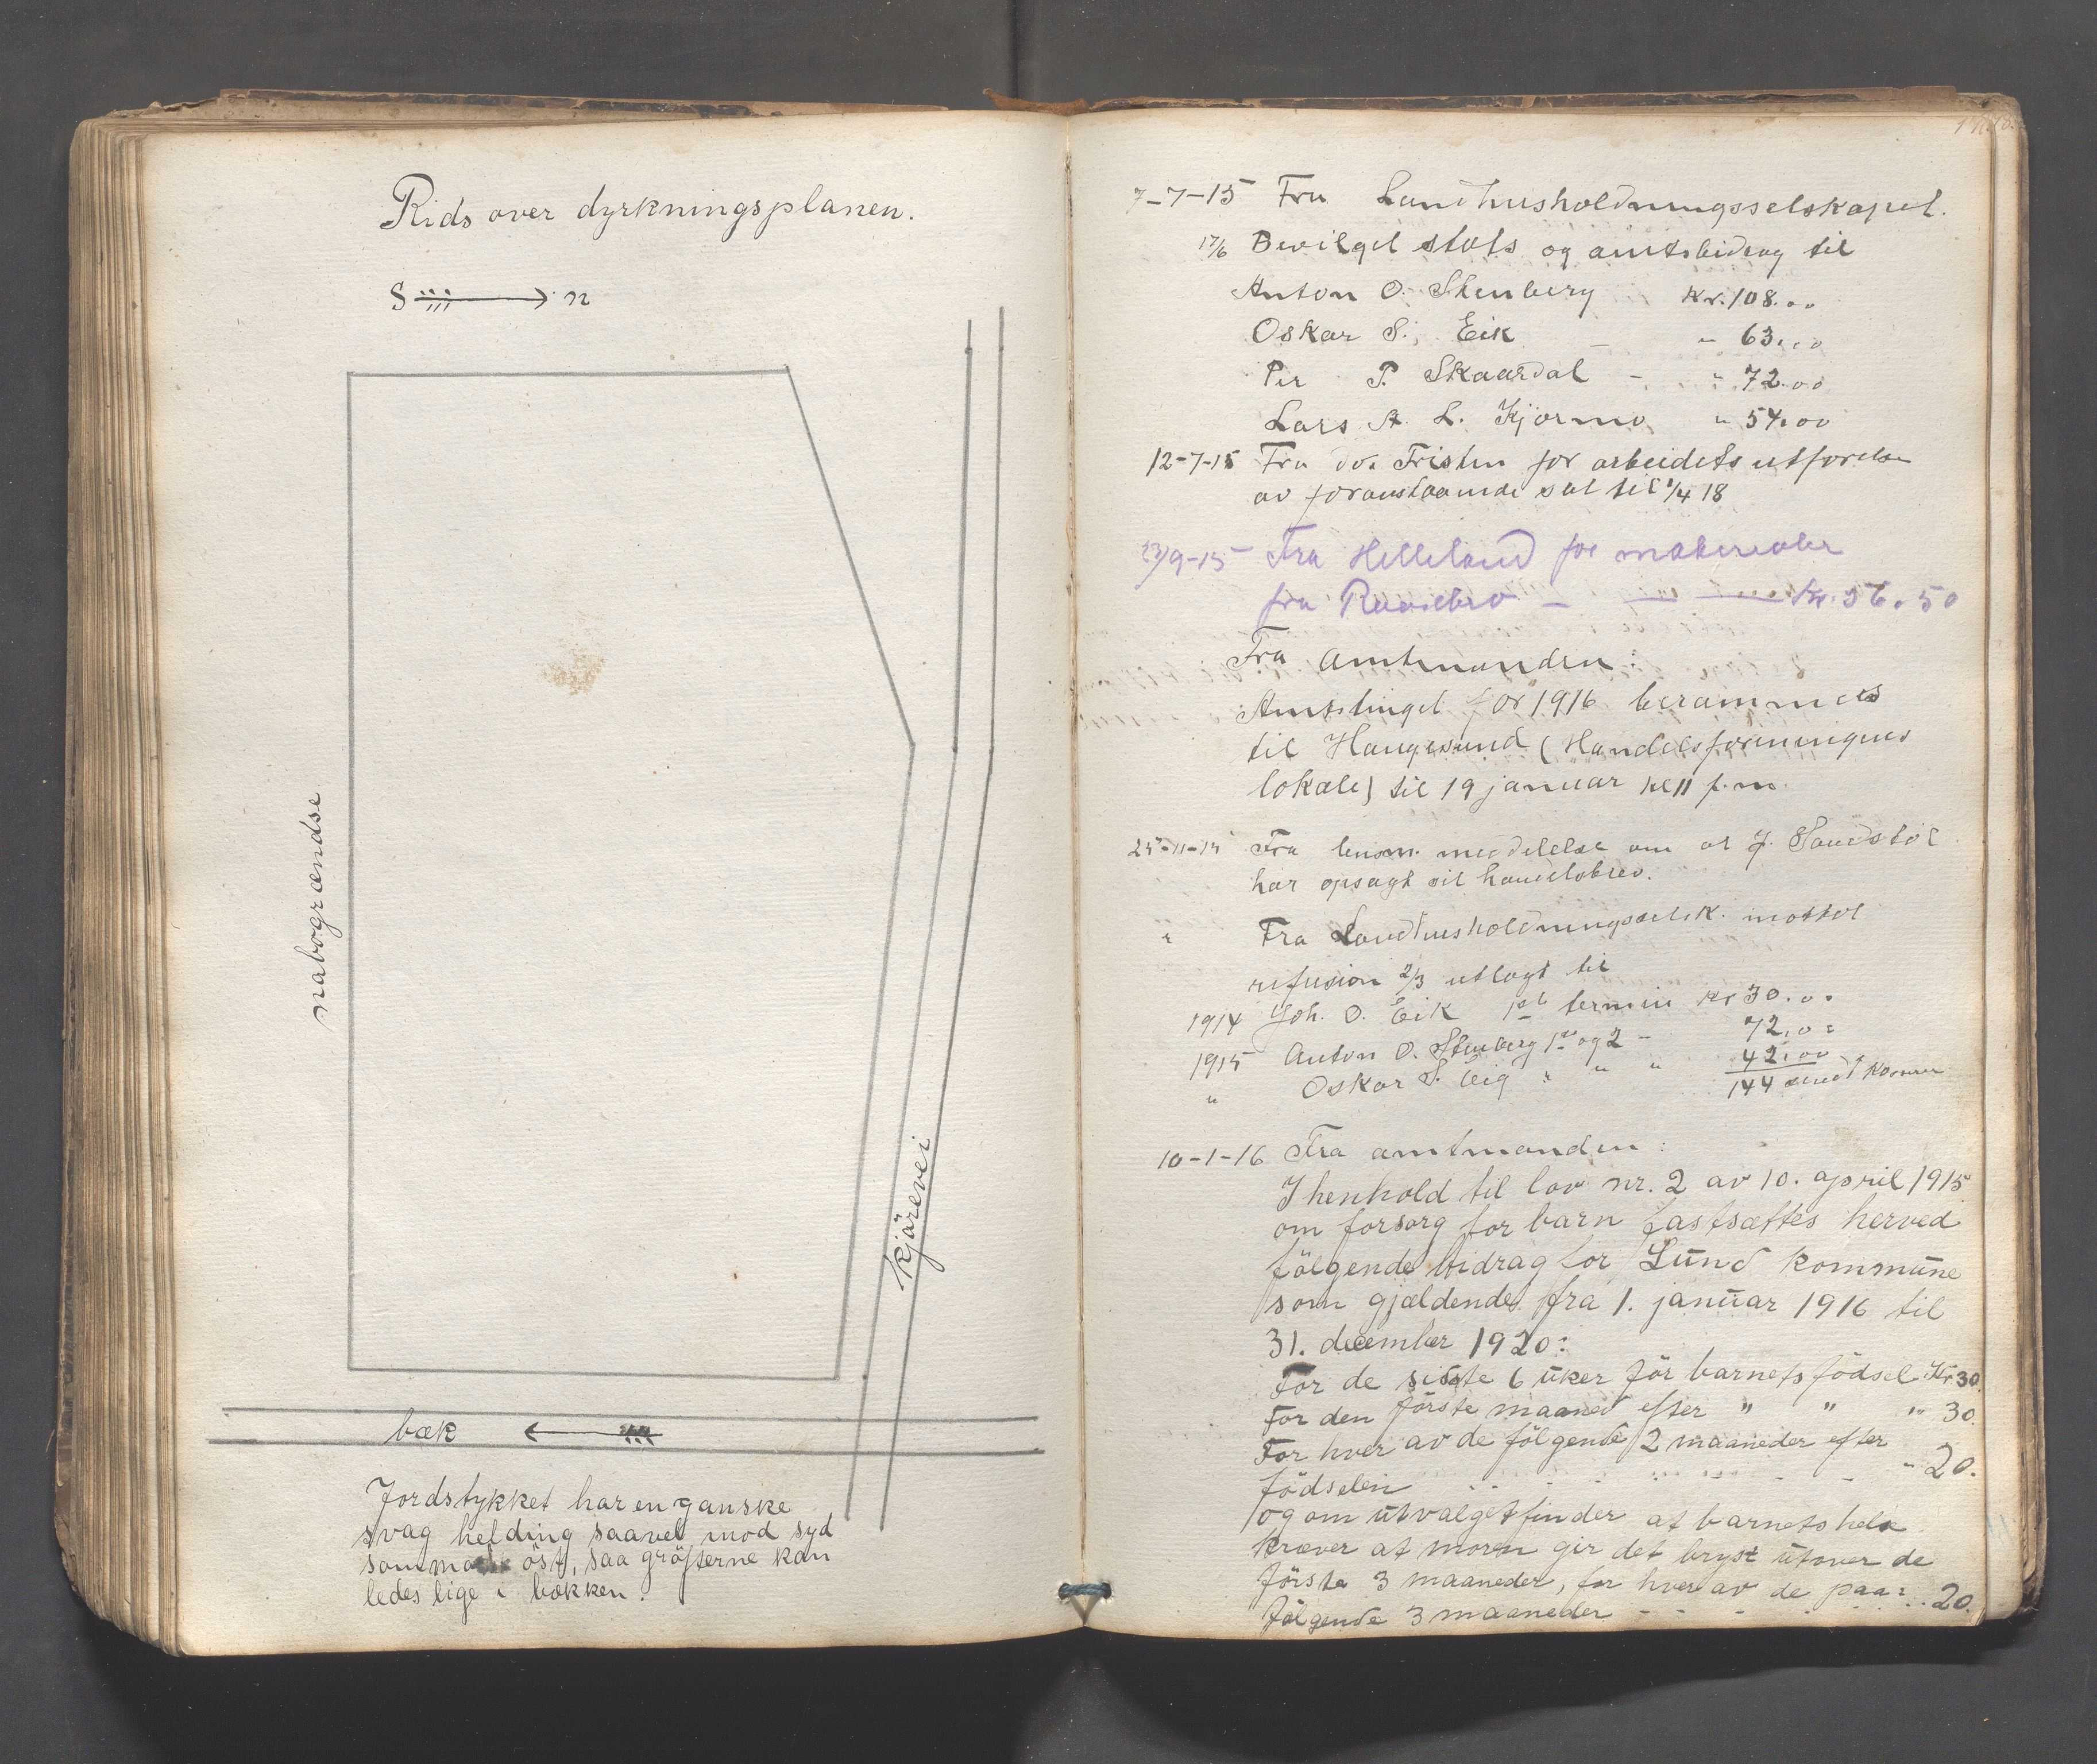 Rids over dyrkningsplanen.
S n
nabogrændse
kjörevei
bæk
Jordstykket har en ganske
svag helding saavel mod syd
som mot öst, saa gröfterne kan
ledes lige i bækken.
7-7-15 Fra Landhusholdningsselskapet.
17/6 Bevilget stats og amtsbidrag til
Anton O. Stenberg Kr. 108.00
Oskar S. Eik - " 63.00
Per P. Skaardal - " 72.00
Lars A. L. Kjørmo " 54.00
12-7-15 Fra do. Fristen for arbeidets utførelse
av foranstaaende sat til 1/4 18
23/9-15 Fra Helleland for materialer
fra Ruusebro - Kr. 56.50
Fra Amtmanden:
Amtstinget for 1916 berammes
til Haugesund (Handelsforeningens
lokale) til 19 januar kl 11 f.m.
25-11-15 Fra lensm. meddelelse om at J. Sandstøl
har opsagt sit handelsbrev.
" Fra Landhusholdningsselsk. mottat
refusion 2/3 utlagt til
1914 Joh. O. Eik 1ste termin Kr 30.00
1915 Anton O. Stenberg 1ste og 2 - 72.00
" Oskar S. Eig " " " 42.00
144 sendt kasserer
10-1-16 Fra amtmanden:
I henhold til lov nr. 2 av 10. april 1915
om forsorg for barn fastsættes herved
fölgende bidrag for Lund kommune
som gjældende fra 1. januar 1916 til
31. december 1920:
For de sidste 6 uker för barnets födsel Kr 30.
For den förste maaned efter " " " 30.
For hver av de fölgende 2 maaneder efter
födselen " 20.
og om utvalget finder at barnets helse
kræver at moren gir det bryst utover de
förste 3 maaneder, for hver av de paa=
fölgende 3 maaneder - - - 20.